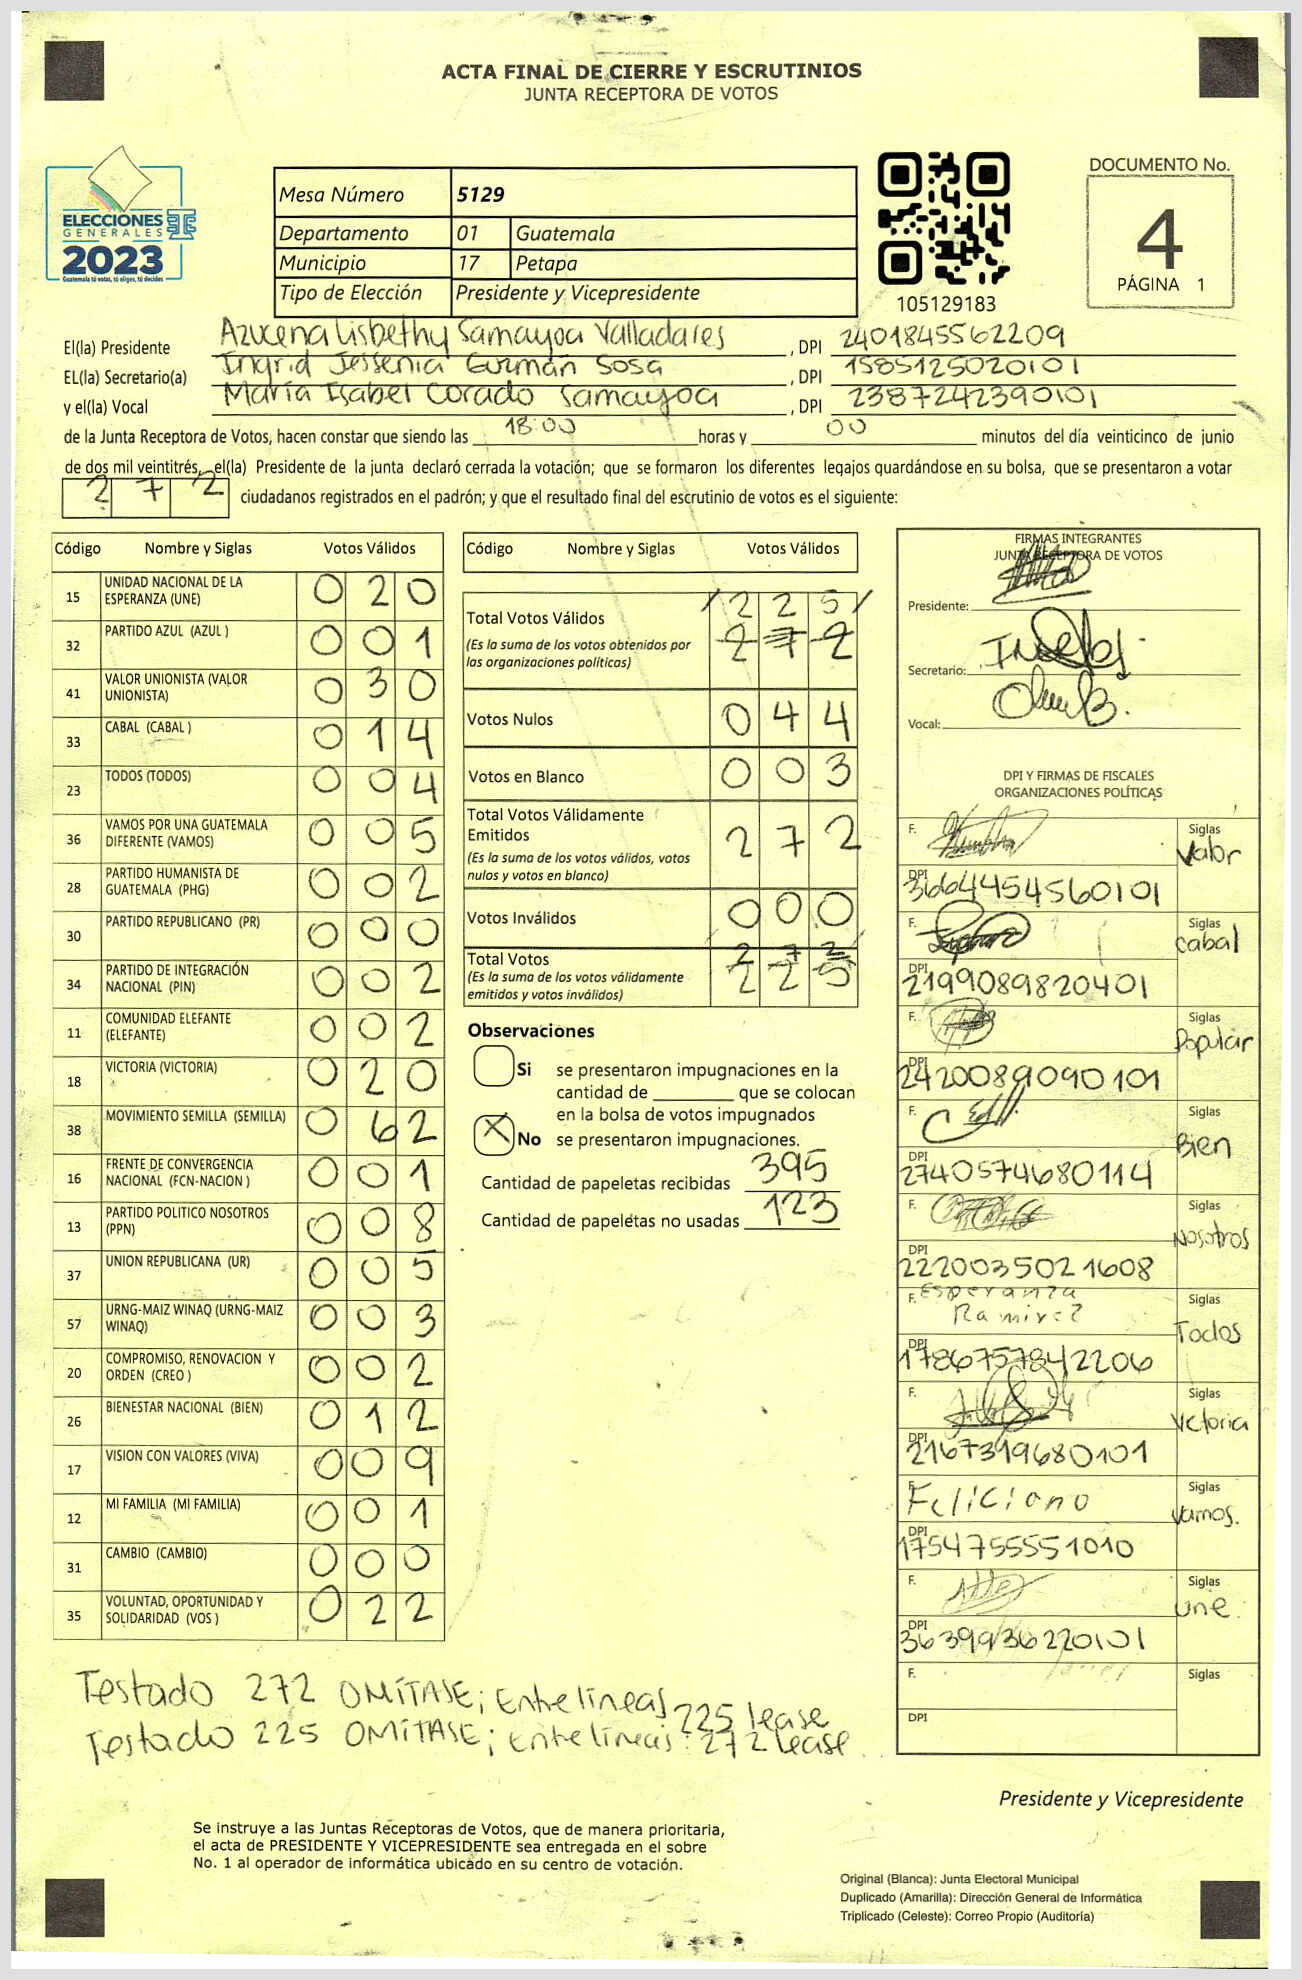 ACTA FINAL DE CIERRE Y ESCRUTINIOS
JUNTA RECEPTORA DE VOTOS
ELECCIONES
GENERALES
2023
Guatemala tú votas, tú eliges, tú decides
Mesa Número 5129
Departamento 01 Guatemala
Municipio 17 Petapa
Tipo de Elección Presidente y Vicepresidente
105129183
DOCUMENTO No.
4
PÁGINA 1
El(la) Presidente Azucena Lisbethy Samayoa Valladares , DPI 2401845562209
EL(la) Secretario(a) Ingrid Jessenia Guzmán Sosa , DPI 1585125020101
y el(la) Vocal María Isabel Corado Samayoa , DPI 2387242390101
de la Junta Receptora de Votos, hacen constar que siendo las 18:00 horas y 00 minutos del día veinticinco de junio
de dos mil veintitrés, el(la) Presidente de la junta declaró cerrada la votación; que se formaron los diferentes legajos quardándose en su bolsa, que se presentaron a votar
272 ciudadanos registrados en el padrón; y que el resultado final del escrutinio de votos es el siguiente:
Código Nombre y Siglas Votos Válidos
15 UNIDAD NACIONAL DE LA ESPERANZA (UNE) 0 2 0
32 PARTIDO AZUL (AZUL ) 0 0 1
41 VALOR UNIONISTA (VALOR UNIONISTA) 0 3 0
33 CABAL (CABAL ) 0 1 4
23 TODOS (TODOS) 0 0 4
36 VAMOS POR UNA GUATEMALA DIFERENTE (VAMOS) 0 0 5
28 PARTIDO HUMANISTA DE GUATEMALA (PHG) 0 0 2
30 PARTIDO REPUBLICANO (PR) 0 0 0
34 PARTIDO DE INTEGRACIÓN NACIONAL (PIN) 0 0 2
11 COMUNIDAD ELEFANTE (ELEFANTE) 0 0 2
18 VICTORIA (VICTORIA) 0 2 0
38 MOVIMIENTO SEMILLA (SEMILLA) 0 6 2
16 FRENTE DE CONVERGENCIA NACIONAL (FCN-NACION ) 0 0 1
13 PARTIDO POLITICO NOSOTROS (PPN) 0 0 8
37 UNION REPUBLICANA (UR) 0 0 5
57 URNG-MAIZ WINAQ (URNG-MAIZ WINAQ) 0 0 3
20 COMPROMISO, RENOVACION Y ORDEN (CREO ) 0 0 2
26 BIENESTAR NACIONAL (BIEN) 0 1 2
17 VISION CON VALORES (VIVA) 0 0 9
12 MI FAMILIA (MI FAMILIA) 0 0 1
31 CAMBIO (CAMBIO) 0 0 0
35 VOLUNTAD, OPORTUNIDAD Y SOLIDARIDAD (VOS ) 0 2 2
Código Nombre y Siglas Votos Válidos
Total Votos Válidos / 2 2 5 /
(Es la suma de los votos obtenidos por las organizaciones políticas) 2 7 2
Votos Nulos 0 4 4
Votos en Blanco 0 0 3
Total Votos Válidamente Emitidos 2 7 2
(Es la suma de los votos válidos, votos nulos y votos en blanco)
Votos Inválidos 0 0 0
Total Votos 2 7 2
(Es la suma de los votos válidamente emitidos y votos inválidos) 2 2 5
Observaciones
Si se presentaron impugnaciones en la
cantidad de ________ que se colocan
en la bolsa de votos impugnados
X No se presentaron impugnaciones.
Cantidad de papeletas recibidas 395
Cantidad de papeletas no usadas 123
FIRMAS INTEGRANTES
JUNTA RECEPTORA DE VOTOS
Presidente:
Secretario:
Vocal:
DPI Y FIRMAS DE FISCALES
ORGANIZACIONES POLÍTICAS
F. Siglas Valor
DPI 3664454560101
F. Siglas Cabal
DPI 2199089820401
F. Siglas Popular
DPI 2420089090101
F. Siglas Bien
DPI 2740574680114
F. Siglas Nosotros
DPI 2220035021608
F. Esperanza Ramirez Siglas Todos
DPI 1786757842206
F. Siglas Victoria
DPI 2167319680101
F. Feliciano Siglas Vamos.
DPI 1754755551010
F. Siglas une
DPI 3639936220101
F. Siglas
DPI
Testado 272 OMÍTASE; Entre líneas 225 lease
Testado 225 OMÍTASE; Entre líneas: 272 lease.
Presidente y Vicepresidente
Se instruye a las Juntas Receptoras de Votos, que de manera prioritaria,
el acta de PRESIDENTE Y VICEPRESIDENTE sea entregada en el sobre
No. 1 al operador de informática ubicado en su centro de votación.
Original (Blanca): Junta Electoral Municipal
Duplicado (Amarilla): Dirección General de Informática
Triplicado (Celeste): Correo Propio (Auditoría)